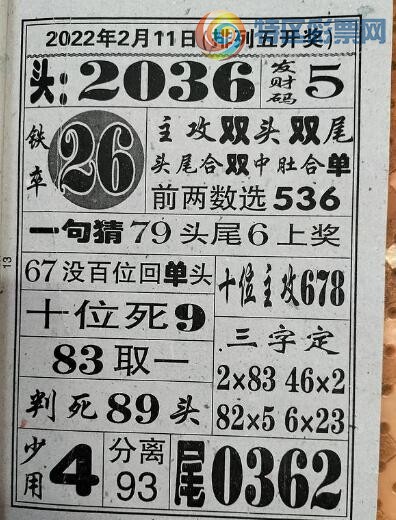 特区彩票网
2022年2月11日(排列五开奖)
头:2036
发财码
5
铁卒
26
主攻双头双尾
头尾合双中肚合单
前两数选536
一句猜79头尾6上奖
13
67没百位回单头
十位主攻678
十位死9
三字定
83取一
2×83 46×2
判死89头
82×5 6×23
少用
4
分离
93
尾0362